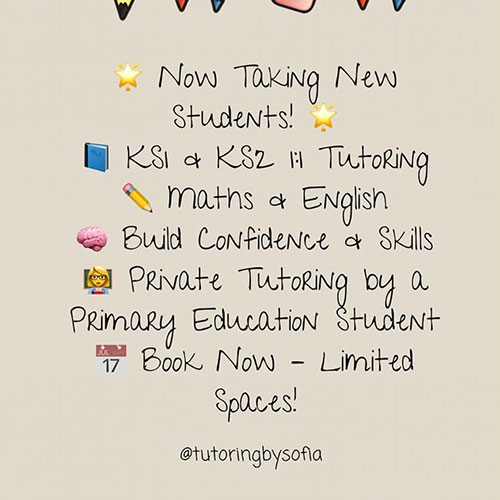 🌟 Now Taking New
Students! 🌟
📘 KS1 & KS2 1:1 Tutoring
✏️ Maths & English
🧠 Build Confidence & Skills
👩‍🏫 Private Tutoring by a
Primary Education Student
📅 Book Now – Limited
Spaces!
@tutoringbysofia